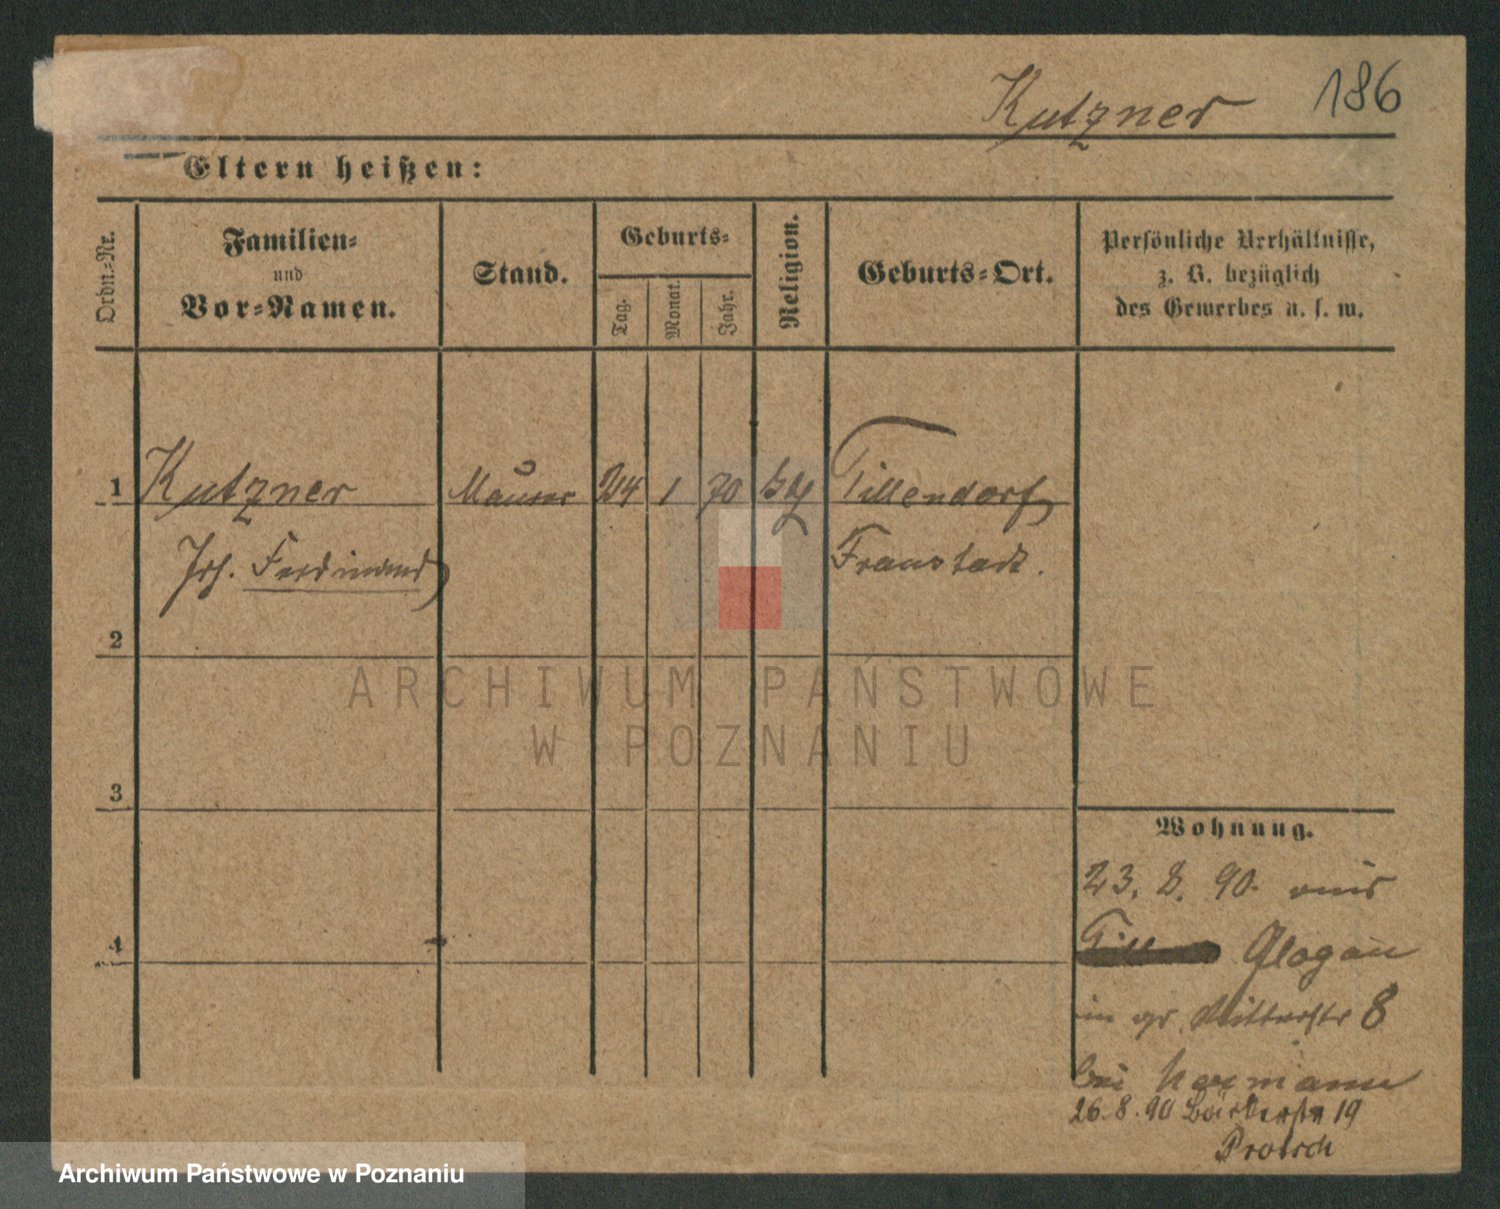 Kutzner 186
Eltern heißen:
Ordn.-Nr.
Familien-
und
Vor-Namen.
Stand.
Geburts-
Tag.
Monat.
Jahr.
Religion.
Geburts-Ort.
Persönliche Verhältnisse,
z. B. bezüglich
des Gewerbes u. s. w.
1 Kutzner Maurer 24 1 70 Tillendorf
Joh. Ferdinand Fraustadt.
2
3
4
ARCHIWUM PAŃSTWOWE
W POZNANIU
Wohnung.
23. 8. 90. aus
Glogau
in gr. Ritterstr 8
bei
26.8.90 Bäckerstr 19
Protsch
Archiwum Państwowe w Poznaniu